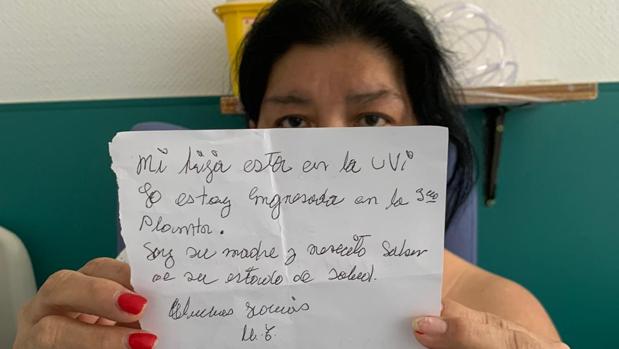 Mi hija esta en la UVI
Yo estoy Ingresada en la 3era
Planta.
Soy su madre y necesito saber
de su estado de salud.
Muchas gracias